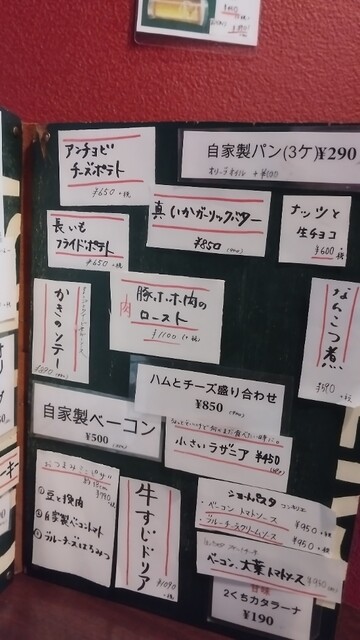 アンチョビ
チーズポテト
¥650
自家製パン(3ケ)¥290
オリーブオイル +¥100
長いも
フライドポテト
¥650
真いかガーリックバター
¥850
ナッツと
生チョコ
¥600
かきのソテー
肉
豚ホホ肉の
ロースト
¥1100
なんこつ煮
¥590
ハムとチーズ盛り合わせ
¥850
自家製ベーコン
¥500
小さいラザニア ¥450
おつまみ
¥790
①豆と挽肉
②自家製ベーコントマト
③ブルーチーズはちみつ
牛すじドリア
¥1090
ショートパスタ
・ベーコントマトソース ¥950
・ブルーチーズクリームソース ¥950
ベーコン、大葉トマトソース ¥950
2くちカタラーナ
¥190